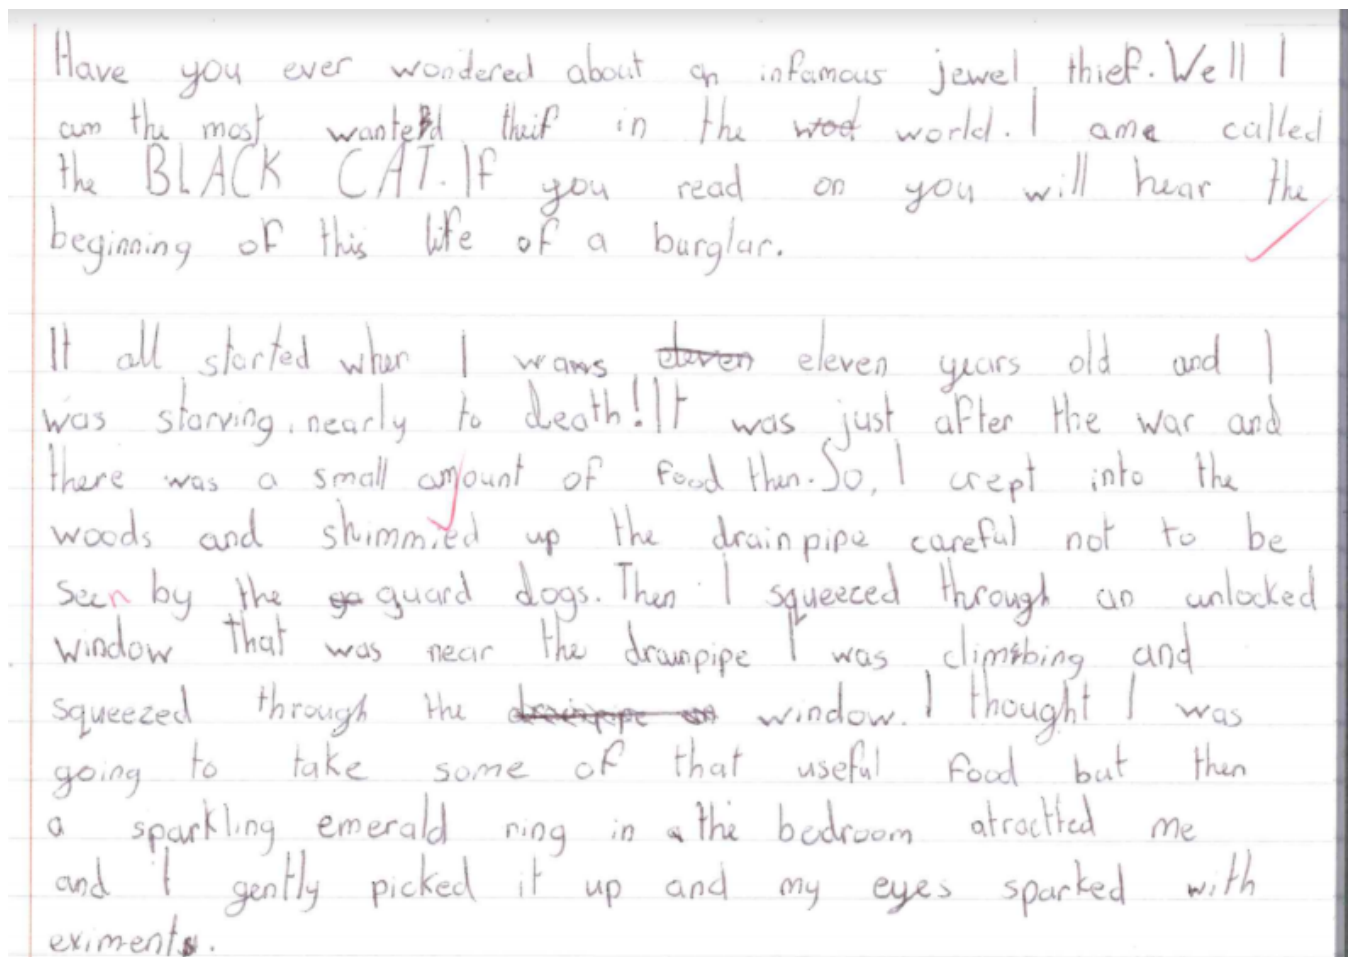 Have you ever wondered about an infamous jewel thief. Well I
am the most wanted theif in the wod world. I ame called
the BLACK CAT. If you read on you will hear the
beginning of this life of a burglar.
It all started when I was eleven eleven years old and I
was starving, nearly to death! It was just after the war and
there was a small amount of food then. So, I crept into the
woods and shimmied up the drainpipe careful not to be
seen by the ga guard dogs. Then I squeezed through an unlocked
window that was near the drainpipe I was climbing and
squeezed through the drainpipe window. I thought I was
going to take some of that useful food but then
a sparkling emerald ring in the bedroom atractted me
and I gently picked it up and my eyes sparked with
eximents.